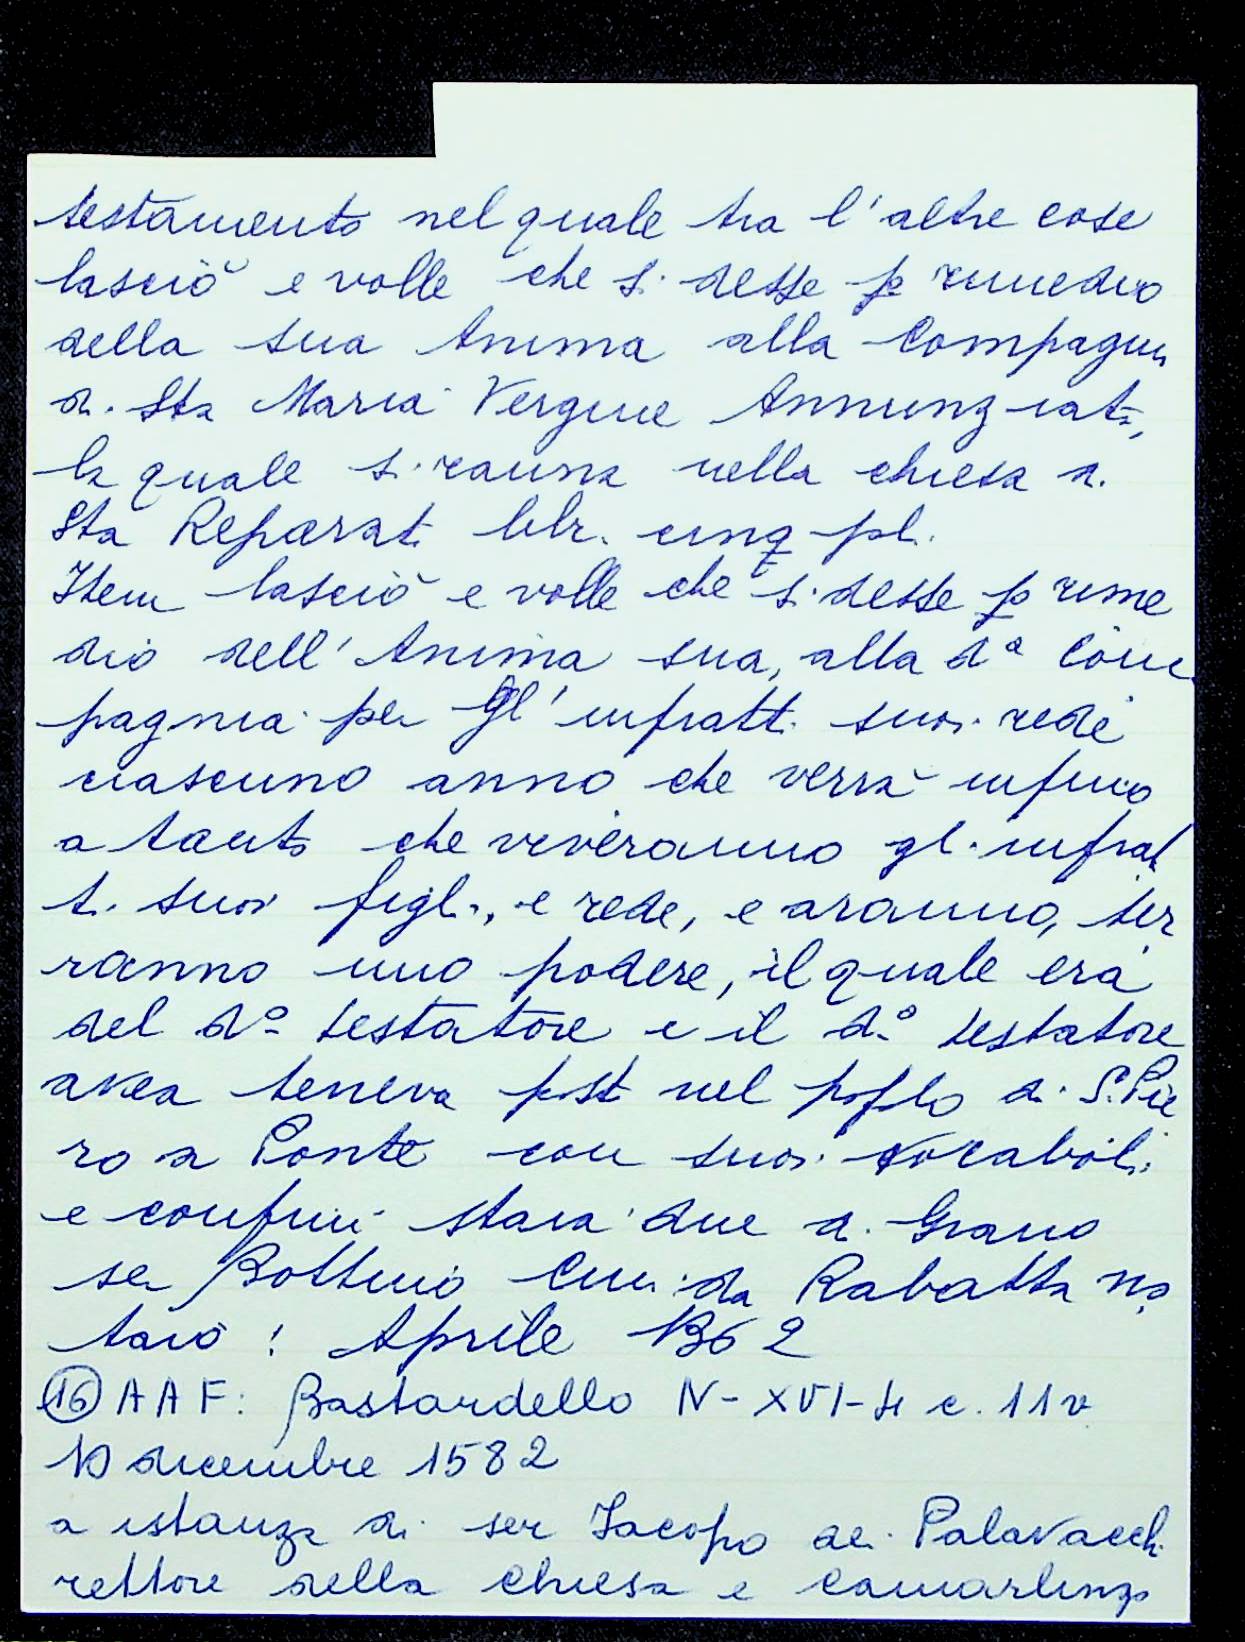 testamento nel quale tra l'altre cose
lasciò e volle che si desse p rimedio
della sua Anima alla Compagnia
di Sta Maria Vergine Annunziata,
la quale si rauna nella chiesa di
Sta Reparata libr. cinq pl.
Item lasciò e volle che si desse p rime
dio dell'Anima sua, alla dª Com
pagnia per gl'infratti suoi rede
ciascuno anno che verrà infino
a tanto che viveranno gl'infrat
ti suoi figli, e rede, e aranno, ter
ranno uno podere, il quale era
del dº testatore e il dº testatore
avea teneva post nel poplo di S. Pie
ro a Ponte con suoi vocaboli
e confini staia due di Grano
ser Bottino Cini da Rabatta no
taio ! Aprile 1362
(16) AAF: Bastardello N-XVI-4 c. 11v
10 dicembre 1582
a istanza di ser Jacopo dei Palavacchi
rettore della chiesa e camarlingo